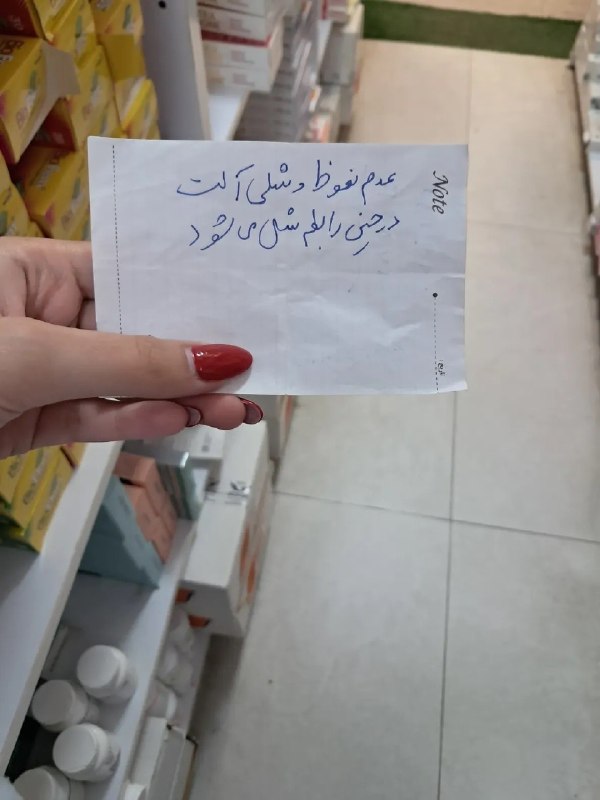 عدم نعوظ و شلی آلت
در حین رابطه شل می شود
Note